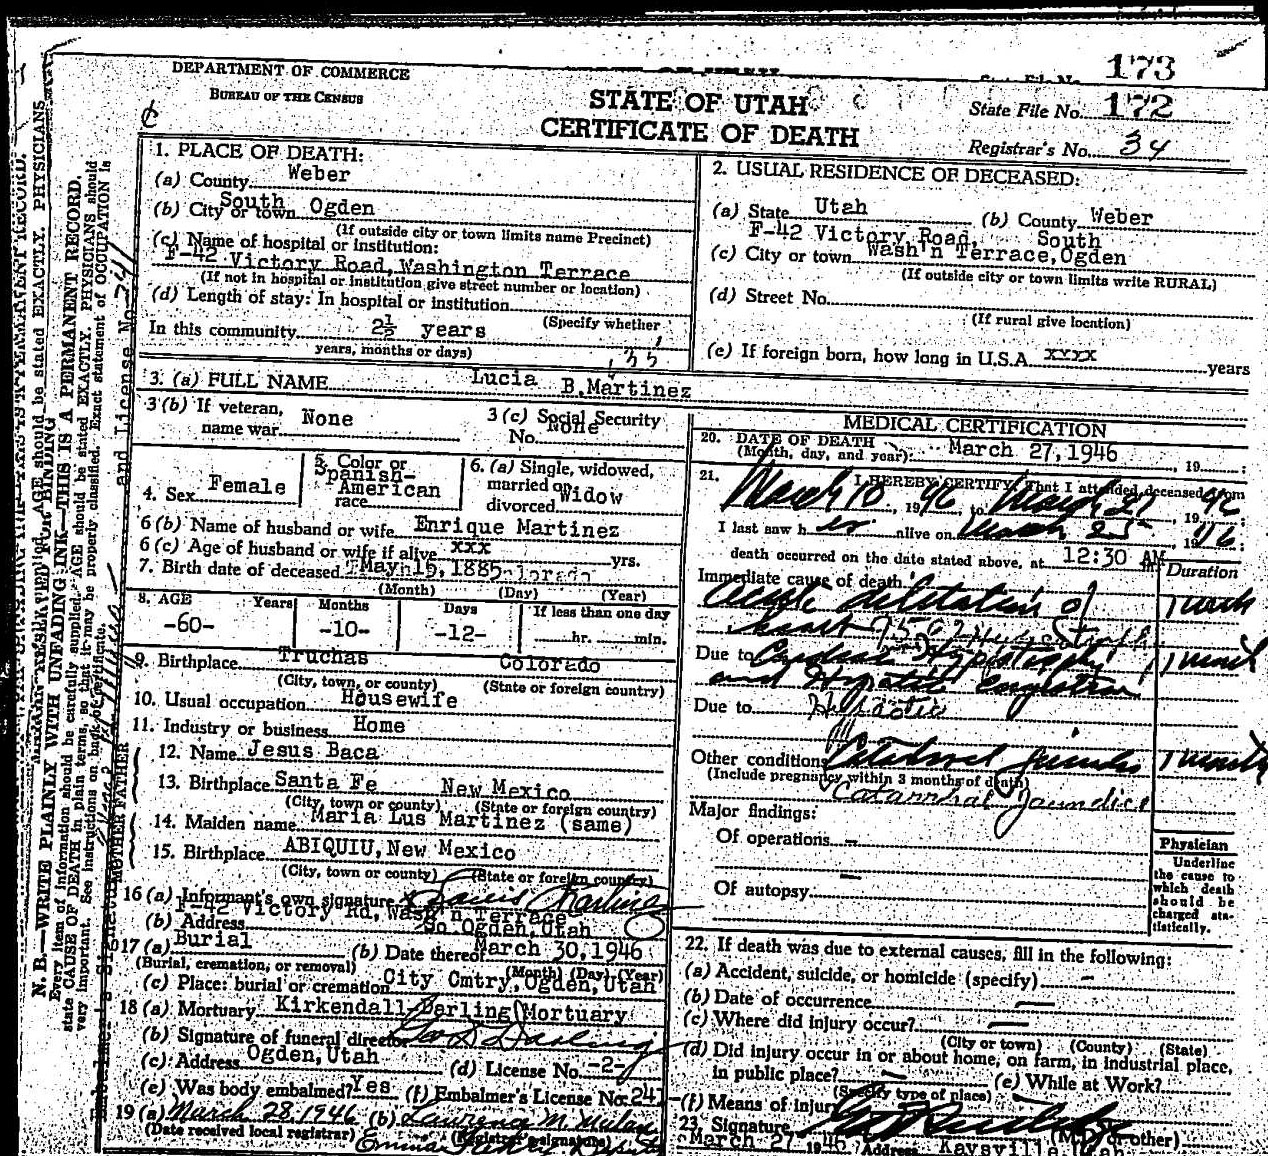 173
DEPARTMENT OF COMMERCE
BUREAU OF THE CENSUS
STATE OF UTAH
CERTIFICATE OF DEATH
State File No. 172
Registrar's No. 34
1. PLACE OF DEATH:
(a) County Weber
(b) City or town South Ogden
(If outside city or town limits name Precinct)
(c) Name of hospital or institution:
F-42 Victory Road, Washington Terrace
(If not in hospital or institution give street number or location)
(d) Length of stay: In hospital or institution
(Specify whether
In this community 2½ years
years, months or days)
2. USUAL RESIDENCE OF DECEASED:
(a) State Utah (b) County Weber
F-42 Victory Road, South
(c) City or town Wash'n Terrace, Ogden
(If outside city or town limits write RURAL)
(d) Street No.
(If rural give location)
(e) If foreign born, how long in U.S.A. xxxx years
3. (a) FULL NAME Lucia B. Martinez
3 (b) If veteran, name war None
3 (c) Social Security No. None
4. Sex Female
5. Color or race Spanish-American
6. (a) Single, widowed, married or divorced Widow
6 (b) Name of husband or wife Enrique Martinez
6 (c) Age of husband or wife if alive xxx yrs.
7. Birth date of deceased May 15, 1885
(Month) (Day) (Year)
8. AGE Years Months Days If less than one day
-60- -10- -12- hr. min.
9. Birthplace Truchas Colorado
(City, town, or county) (State or foreign country)
10. Usual occupation Housewife
11. Industry or business Home
FATHER
12. Name Jesus Baca
13. Birthplace Santa Fe New Mexico
(City, town or county) (State or foreign country)
MOTHER
14. Maiden name Maria Lus Martinez (same)
15. Birthplace ABIQUIU, New Mexico
(City, town or county) (State or foreign country)
16 (a) Informant's own signature
(b) Address F-42 Victory Rd, Wash'n Terrace
So Ogden, Utah
17 (a) Burial (b) Date thereof March 30, 1946
(Burial, cremation, or removal) (Month) (Day) (Year)
(c) Place: burial or cremation City Cmtry, Ogden, Utah
18 (a) Mortuary Kirkendall-Darling Mortuary
(b) Signature of funeral director
(c) Address Ogden, Utah (d) License No. -2-
(e) Was body embalmed? Yes (f) Embalmer's License No. 241
19 (a) March 28, 1946 (b)
(Date received local registrar) (Registrar's signature)
MEDICAL CERTIFICATION
20. DATE OF DEATH
(Month, day, and year): March 27, 1946, 19 :
21. I HEREBY CERTIFY, That I attended deceased from
March 10, 1946, to March 27, 1946
I last saw her alive on March 25, 1946;
death occurred on the date stated above, at 12:30 AM
Immediate cause of death Duration
Acute dilatation of heart
Due to Cardiac Hypertrophy
and Hepatic Congestion
Due to Hepatic
Other conditions Catarrhal jaundice
(Include pregnancy within 3 months of death)
Catarrhal Jaundice
Major findings:
Of operations -
Of autopsy -
Physician
Underline the cause to which death should be charged statistically.
22. If death was due to external causes, fill in the following:
(a) Accident, suicide, or homicide (specify) -
(b) Date of occurrence -
(c) Where did injury occur? -
(City or town) (County) (State)
(d) Did injury occur in or about home, on farm, in industrial place,
in public place? -
(Specify type of place) (e) While at Work?
(f) Means of injury
23. Signature (M.D. or other)
March 27, 1946 Address Kaysville, Utah
N. B.—WRITE PLAINLY WITH UNFADING INK—THIS IS A PERMANENT RECORD.
Every item of information should be carefully supplied. AGE should be stated EXACTLY. PHYSICIANS should
state CAUSE OF DEATH in plain terms, so that it may be properly classified. Exact statement of OCCUPATION is
very important. See instructions on back of certificate.